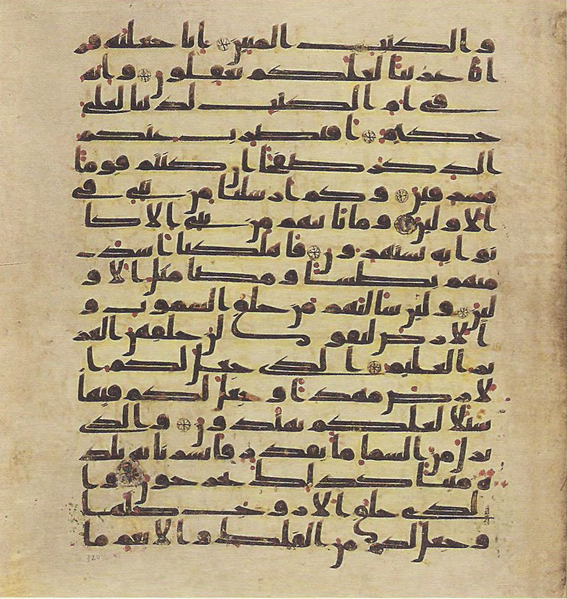 والكتب المبين انا جعلنه قر
انا عربيا لعلكم تعقلون وانه
في ام الكتب لدينا لعلي
حكيم افنضرب عنكم
الذكر صفحا ان كنتم قوما
مسرفين وكم ارسلنا من نبي في
الاولين وما ياتيهم من نبي الا كا
نوا به يستهزون فاهلكنا اشد
منهم بطشا ومضى مثل الاو
لين ولين سالتهم من خلق السموت و
الارض ليقولن خلقهن العز
يز العليم الذي جعل لكم ا
لارض مهدا وجعل لكم فيها
سبلا لعلكم تهتدون والذي
نزل من السما ما بقدر فانشرنا به بلد
ة ميتا كذلك تخرجون وا
لذي خلق الازوج كلها
وجعل لكم من الفلك والانعم ما